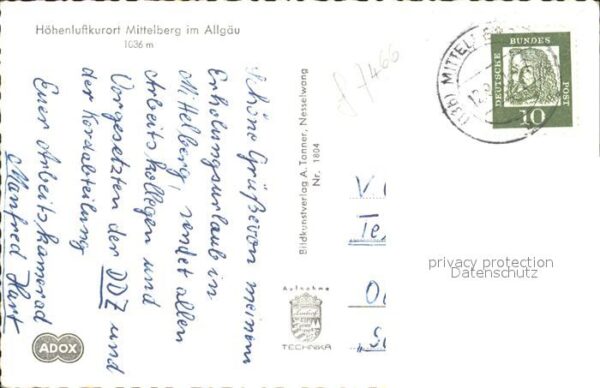 Höhenluftkurort Mittelberg im Allgäu
1036 m
Schöne Grüße von meinem
Erholungsurlaub in
Mittelberg, sendet allen
Arbeitskollegen und
Vorgesetzten der DDZ und
der Kordabteilung
Euer Arbeitskamerad
Manfred Hert
ADOX
Bildkunstverlag A. Tanner, Nesselwang
Nr. 1804
Aufnahme
TECHNIKA
(13b) MITTELBERG
DEUTSCHE BUNDESPOST
10
privacy protection
Datenschutz